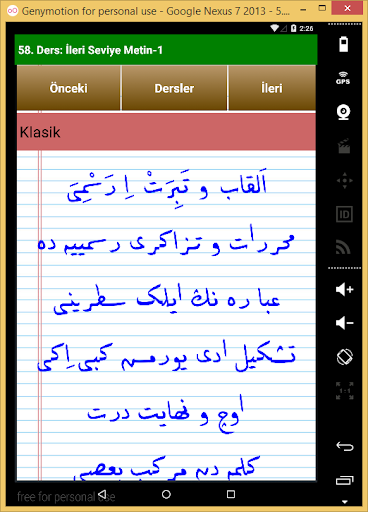 Genymotion for personal use - Google Nexus 7 2013 - 5....
2:26
58. Ders: İleri Seviye Metin-1
Önceki Dersler İleri
GPS
Klasik
اَلقاب و تَبِرَتْ اِ رَسْمِیَ
محررات و تزاكری رسمییه ده
عباره نڭ ایلك سطرینی
تشكیل ادی یورمس كبی اِكی
اوچ و نهایت درت
كلمه دن مركب بعضی
ID
1:1
free for personal use